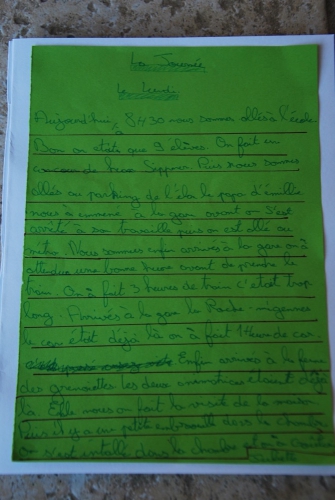 La Journée
Le Lundi
Aujourd'hui, à 8H30 nous sommes allés à l'école
Bon on étais que 9 élèves. On fait un
de heros Puis nous sommes
allés au parking de l'éla le papa d'émilie
nous à emmené a la gare avant on s'est
arrêté à son travaille puis on est allé au
métro. Nous sommes enfin arrivés à la gare on à
attendue une bonne heure avant de prendre le
train. On à fait 3 heures de train c'était trop
long. Arrivés a la gare la Roche-migennes
le car était déjà là on à fait 1 Heure de car.
Enfin arrivés a la ferme
des grenouilles les deux animatrices étaient déjà
la. Elle nous on fait la visite de la maison
Puis il y a un petite embrouille vers la chambre
s'est installé dans la chambre et on a